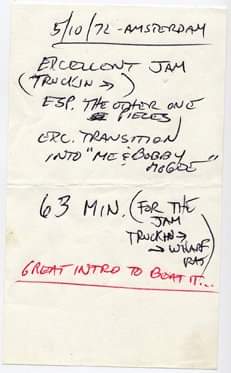 5/10/72 - AMSTERDAM
EXCELLENT JAM
(TRUCKIN →)
ESP. THE OTHER ONE
PIECES)
EXC. TRANSITION
INTO "ME & BOBBY
MCGEE"
63 MIN. (FOR THE
JAM
TRUCKIN →
→ WHARF
RAT)
GREAT INTRO TO BEAT IT...